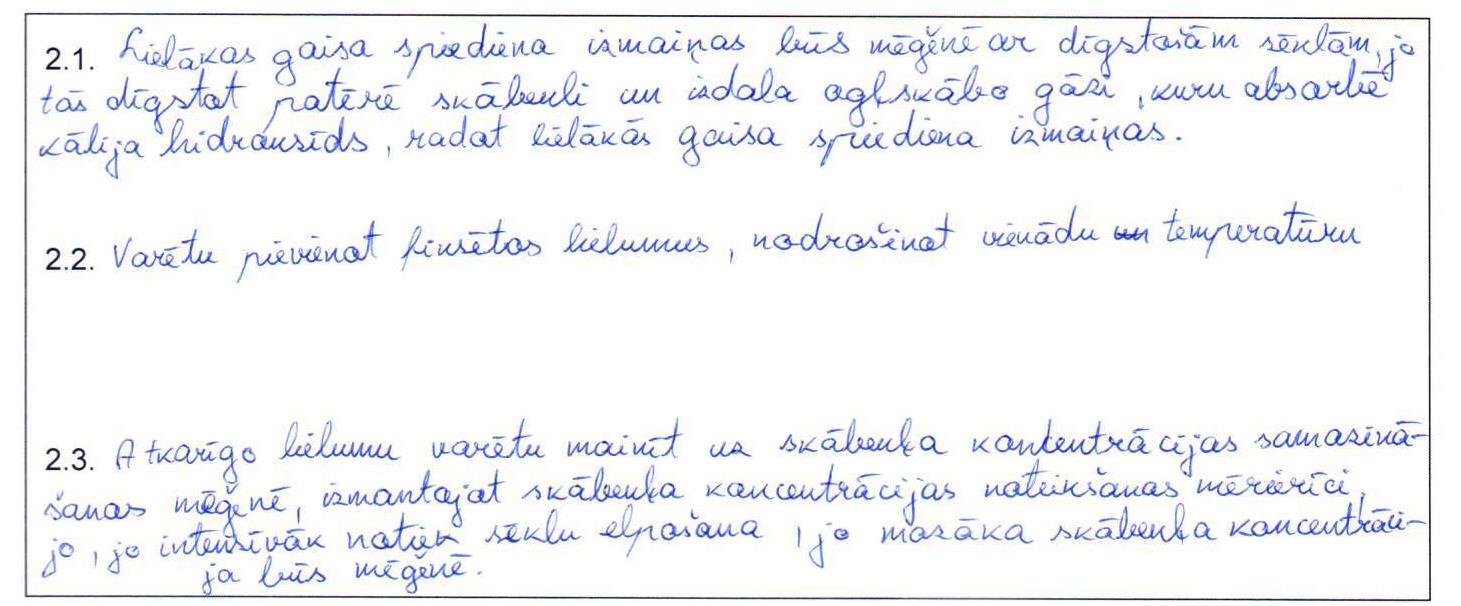 2.1. Lielākas gaisa spiediena izmaiņas būs mēģenē ar dīgstošām sēklām, jo
tās dīgstot patērē skābekli un izdala ogļskābo gāzi, kuru absorbē
kālija hidroksīds, radot lielākās gaisa spiediena izmaiņas.
2.2. Varētu pievienot fiksētos lielumus, nodrošinot vienādu un temperatūru
2.3. Atkarīgo lielumu varētu mainīt uz skābekļa koncentrācijas samazinā-
šanos mēģenē, izmantojot skābekļa koncentrācijas noteikšanas mērierīci,
jo, jo intensīvāk notiek sēklu elpošana, jo mazāka skābekļa koncentrāci-
ja būs mēģenē.